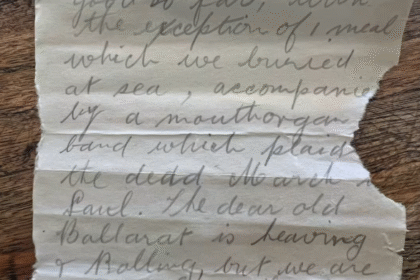 good so far, with
the exception of 1 meal
which we buried
at sea, accompanie
by a mouthorgan
band which plaid
the dedd March
Saul. The dear old
Ballarat is heaving
& Rolling, but we are